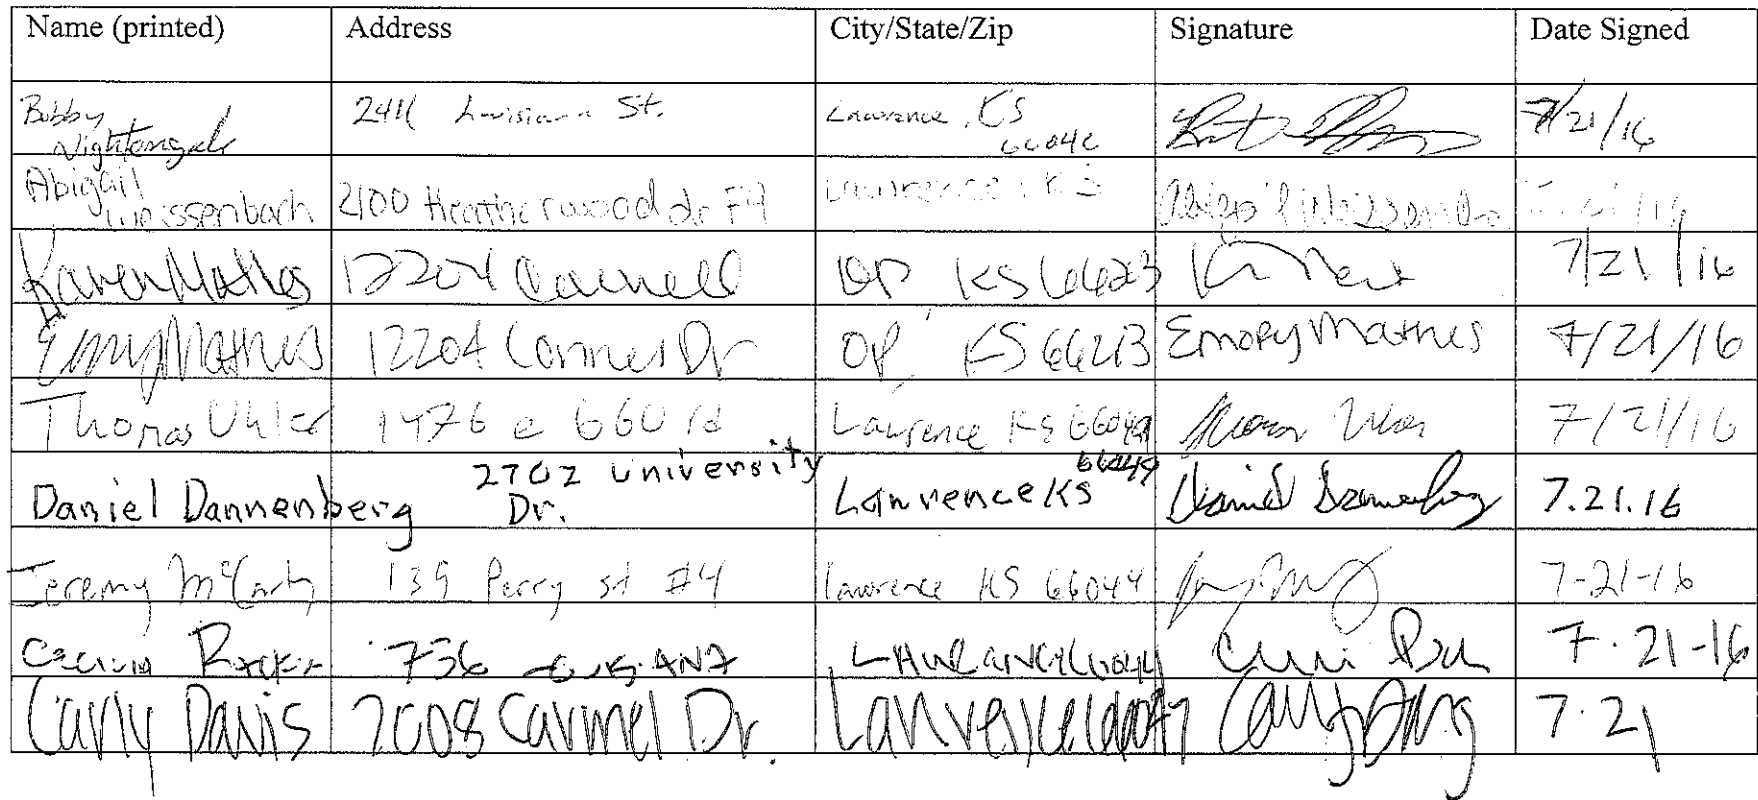 Name (printed) Address City/State/Zip Signature Date Signed
Bobby Nightengale 2411 Louisiana St. Lawrence, KS 7/21/16
Abigail Weissenbach 2100 Heatherwood dr F4 Lawrence, KS Abigail Weissenba
Karen Mathes 12204 OP KS 66213 7/21/16
Emry Mathes 12204 Connell Dr OP, KS 66213 Emory Mathes 7/21/16
Thomas Uhler 1476 e 660 rd Lawrence KS 66049 Thomas Uhler 7/21/16
Daniel Dannenberg 2702 University Dr. Lawrence KS 66049 Daniel Dannenberg 7.21.16
Jeremy McCarty 139 Perry st #4 lawrence KS 66044 7-21-16
736 7.21-16
Carly Davis 2008 Carmel Dr. Lawrence 66047 Carly Davis 7.21